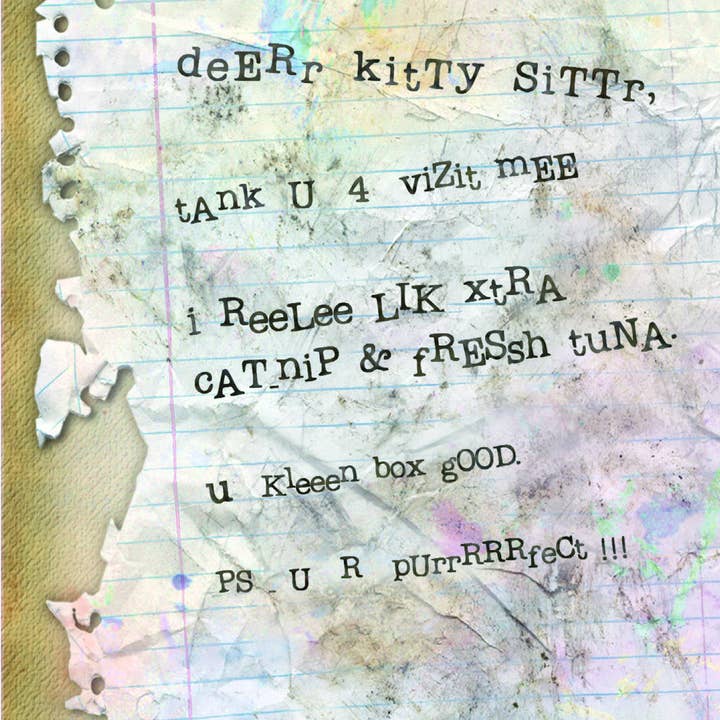 deERr kitTy SiTTr,
tAnk U 4 viZit mEE
i ReeLee LIK XtRA
cAT-niP & fRESsh tuNA.
u Kleeen box gOOD.
PS - U R pUrrRRRfeCt !!!